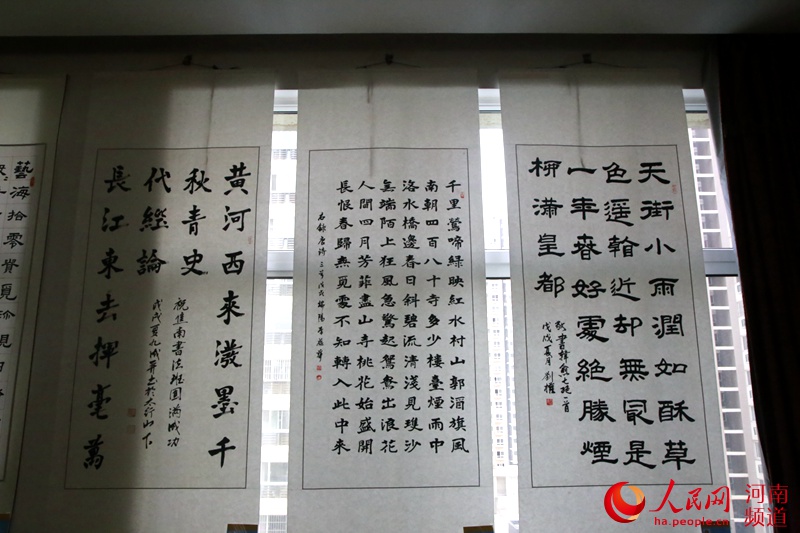 天街小雨潤如酥草
色遥看近却無最是
一年春好處絕勝煙
柳滿皇都
戊戌夏月劉權
千里鶯啼綠映紅水村山郭酒旗風
南朝四百八十寺多少樓臺煙雨中
洛水橋邊春日斜碧流清淺見瓊沙
無端陌上狂風急驚起鴛鴦出浪花
人間四月芳菲盡山寺桃花始盛開
長恨春歸無覓處不知轉入此中來
右錄唐詩三首戊戌
黃河西來潑墨千
秋青史
長江東去揮毫萬
代經論
書法班圓滿成功
戊戌夏九成并書於太行山下
藝海拾零
人民网 河南频道
ha.people.cn